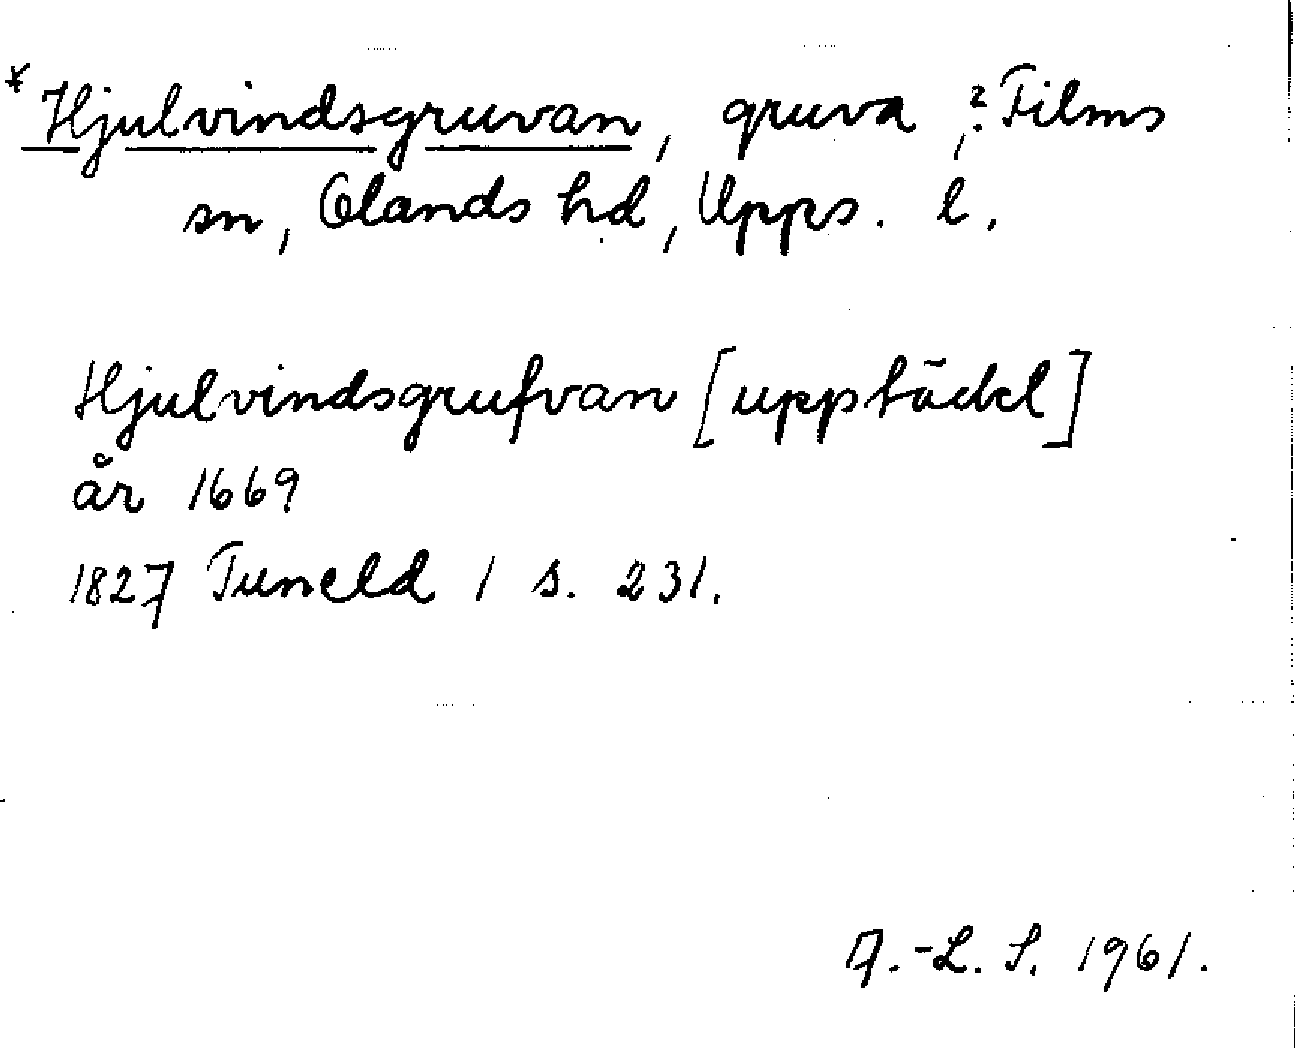 * Hjulvindsgruvan, gruva, ? Films
sn, Olands hd, Upps. l.
Hjulvindsgrufvan [upptäckt]
år 1669
1827 Tuneld 1 s. 231.
A.-L. S. 1961.